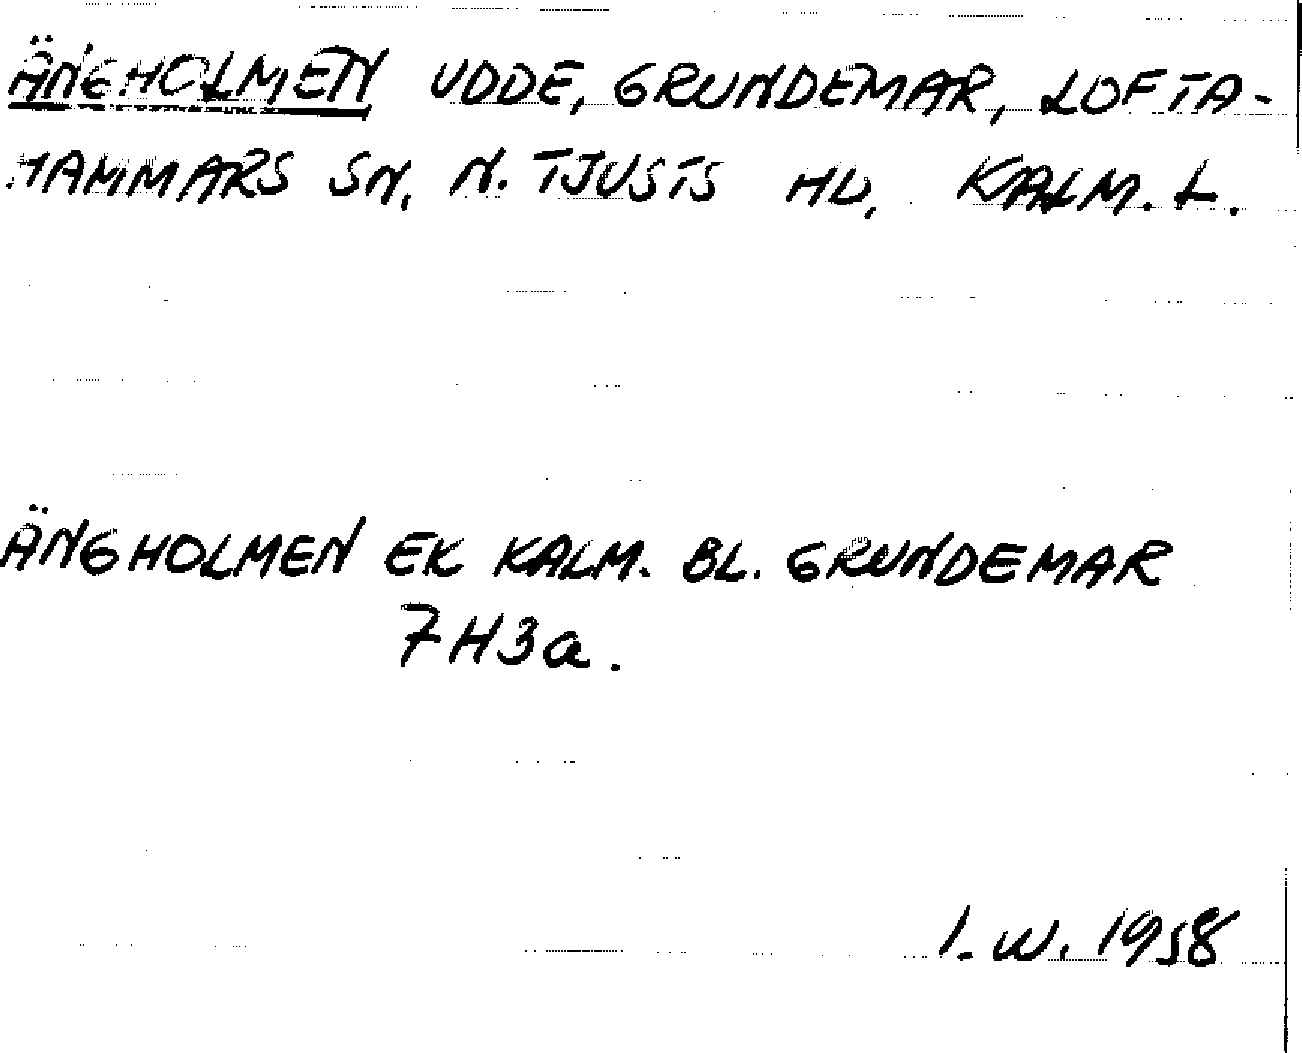 ÄNGHOLMEN UDDE, GRUNDEMAR, LOFTA-
HAMMARS SN, N. TJUSTS HD, KALM. L.
ÄNGHOLMEN EK KALM. BL. GRUNDEMAR
7H3a.
I. W. 1958